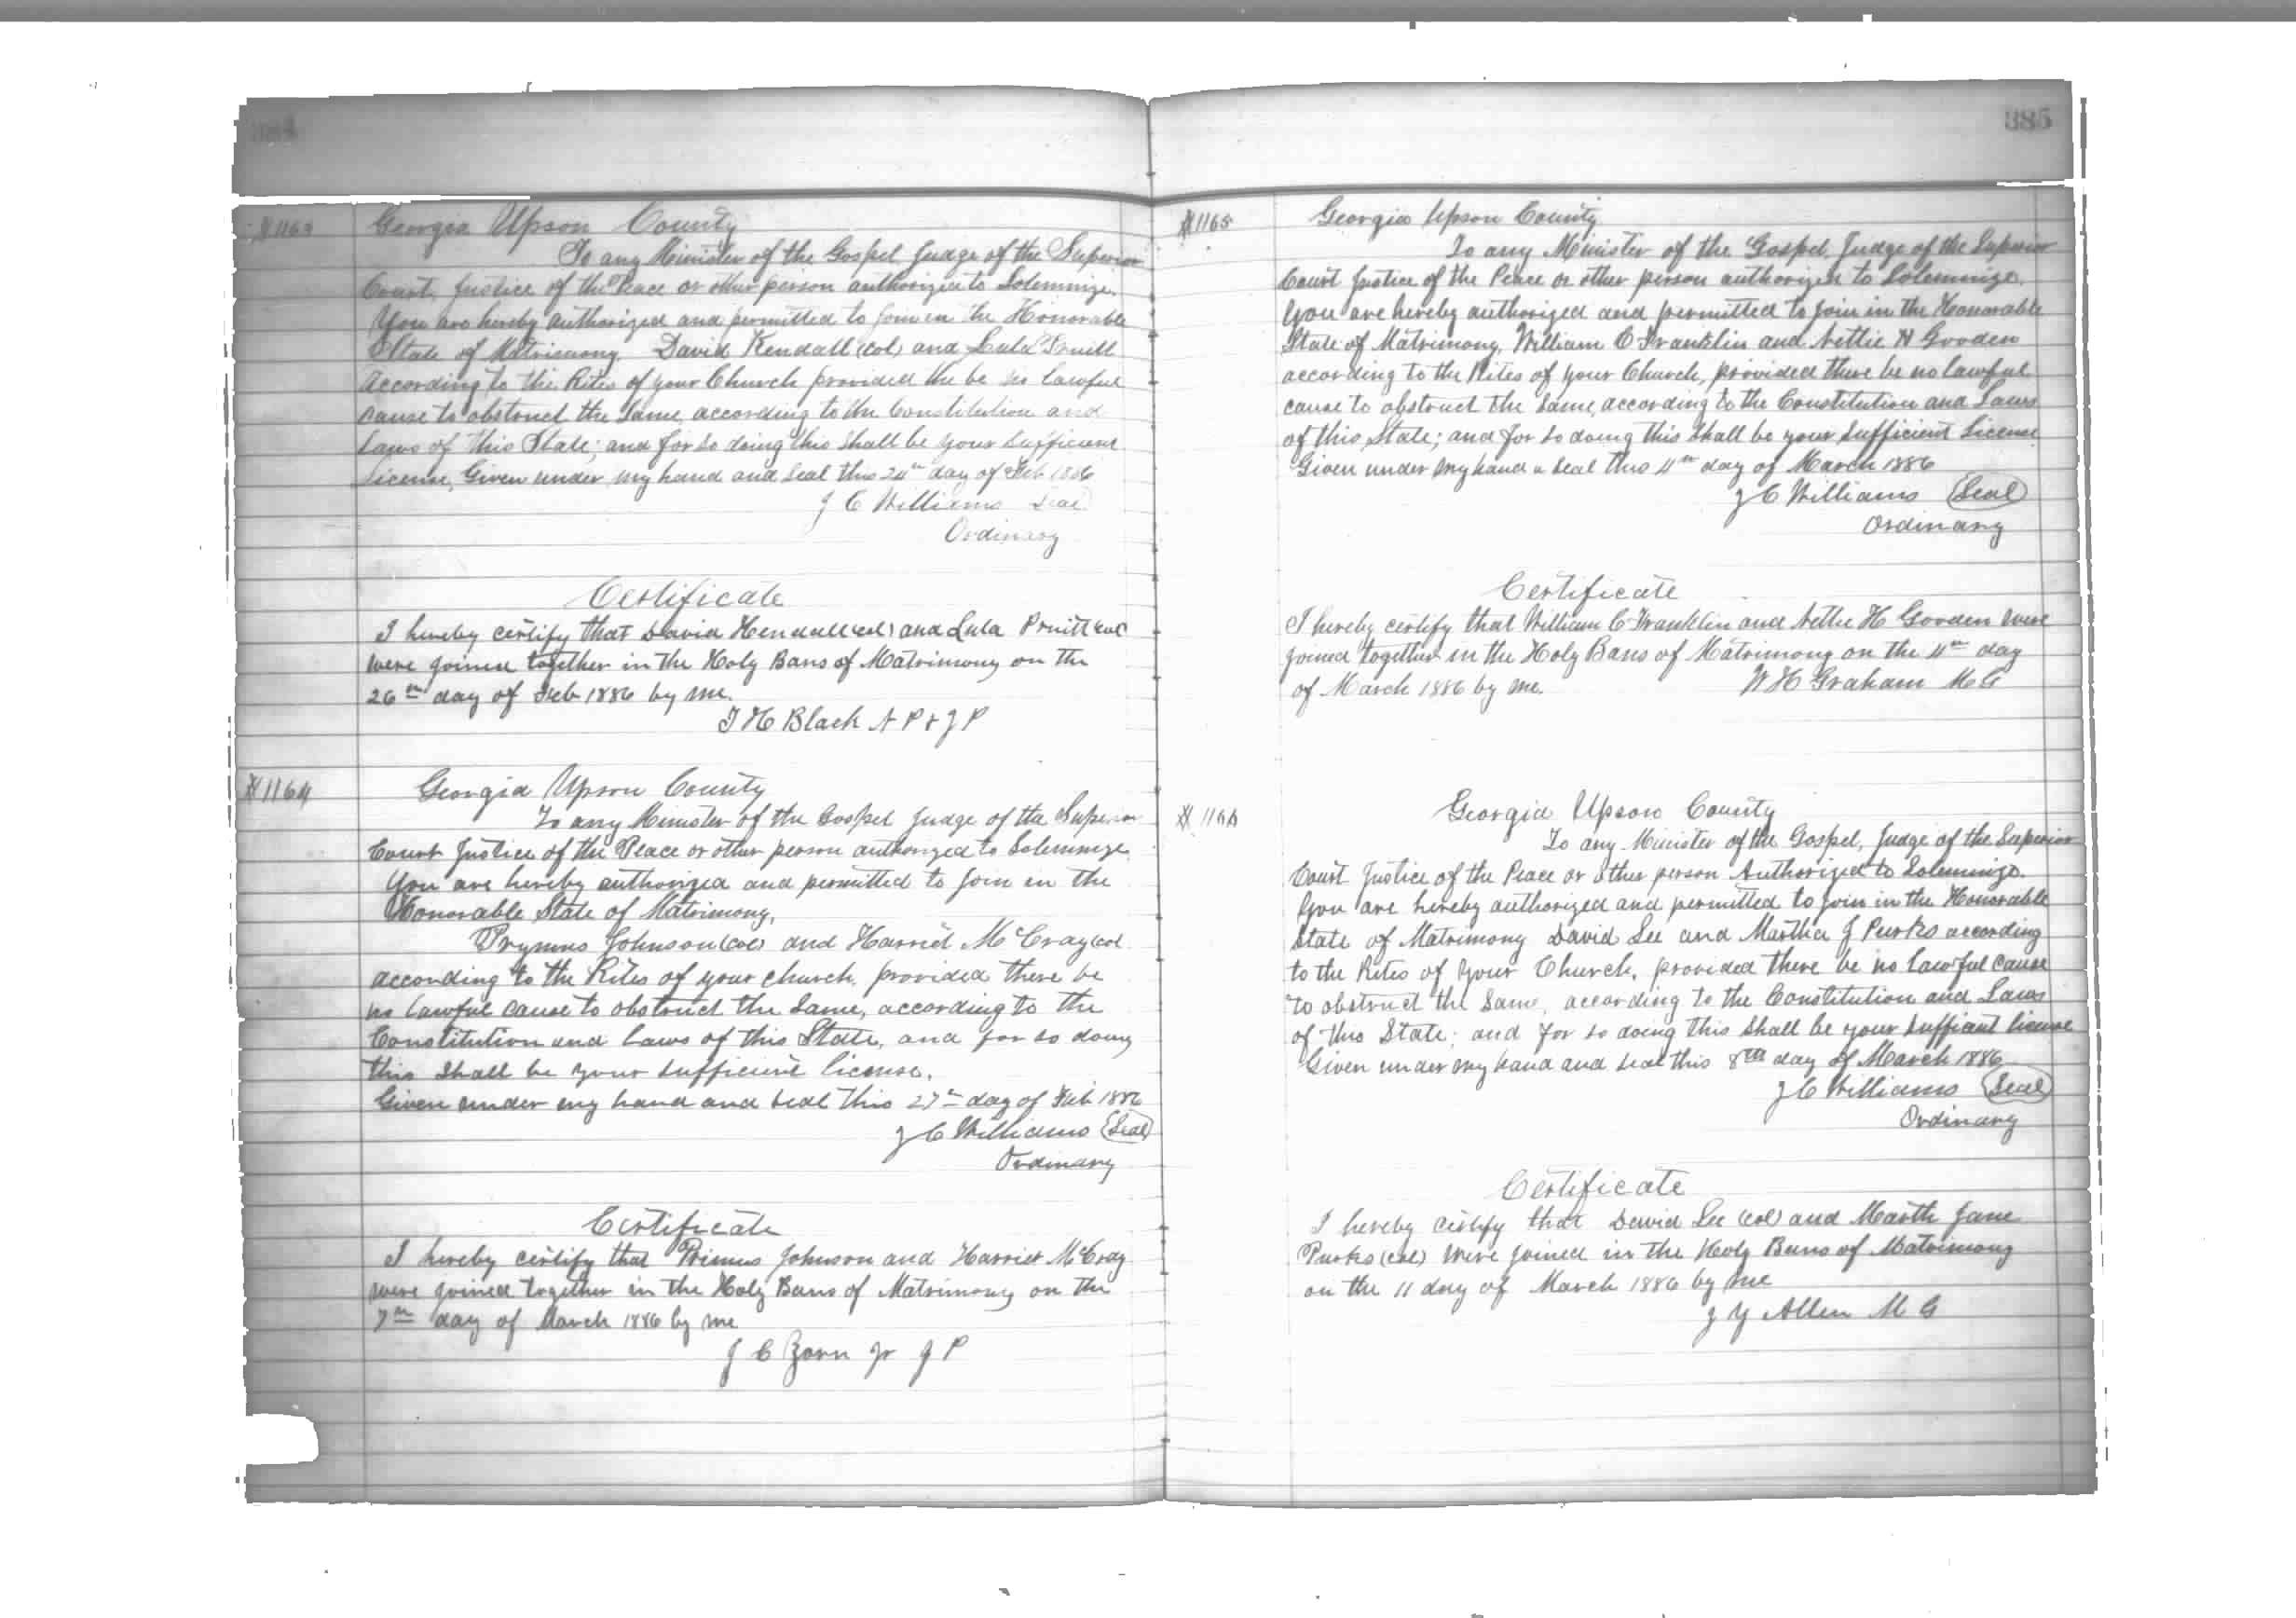 384
# 1163
Georgia Upson County
To any Minister of the Gospel Judge of the Superior
Court, Justice of the Peace or other person authorized to Solemnize.
You are hereby authorized and permitted to join in the Honorable
State of Matrimony, David Kendall (col) and Lula Pruitt
according to the Rites of your Church provided the be no lawful
cause to obstruct the same according to the Constitution and
Laws of this State; and for so doing this shall be your sufficient
License, Given under my hand and seal this 24th day of Feb 1886
J C Williams Seal
Ordinary
Certificate
I hereby certify that David Kendall (col) and Lula Pruitt (col
were joined together in the Holy Bans of Matrimony on the
26th day of Feb 1886 by me.
T H Black N P & J P
# 1164
Georgia Upson County
To any Minister of the Gospel Judge of the Superior
Court Justice of the Peace or other person authorized to Solemnize.
You are hereby authorized and permitted to join in the
Honorable State of Matrimony,
Prymus Johnson (col) and Harriet McCray (col
according to the Rites of your church, provided there be
no lawful cause to obstruct the same, according to the
Constitution and Laws of this State, and for so doing
this shall be your sufficient license.
Given under my hand and seal this 27th day of Feb 1886
J C Williams (Seal)
Ordinary
Certificate
I hereby certify that Primus Johnson and Harriet McCray
were joined together in the Holy Bans of Matrimony on the
7th day of March 1886 by me
J C Zorn Jr J P
385
# 1165
Georgia Upson County
To any Minister of the Gospel, Judge of the Superior
Court Justice of the Peace or other person authorized to Solemnize.
You are hereby authorized and permitted to join in the Honorable
State of Matrimony, William C Franklin and Nettie H Gooden
according to the Rites of your Church, provided there be no lawful
cause to obstruct the same, according to the Constitution and Laws
of this State; and for so doing this shall be your sufficient License
Given under my hand & seal this 11th day of March 1886
J C Williams (Seal)
Ordinary
Certificate
I hereby certify that William C Franklin and Nettie H Gooden were
joined together in the Holy Bans of Matrimony on the 11th day
of March 1886 by me. W H Graham M G
# 1166
Georgia Upson County
To any Minister of the Gospel, Judge of the Superior
Court Justice of the Peace or other person Authorized to Solemnize.
You are hereby authorized and permitted to join in the Honorable
State of Matrimony David Lee and Martha J Purks according
to the Rites of your Church, provided there be no lawful cause
to obstruct the same, according to the Constitution and Laws
of this State; and for so doing this shall be your suffiant license
Given under my hand and seal this 8th day of March 1886
J C Williams (Seal)
Ordinary
Certificate
I hereby certify that David Lee (col) and Marth Jane
Purks (col) were joined in the Holy Bans of Matrimony
on the 11 day of March 1886 by me
J Y Allen M G